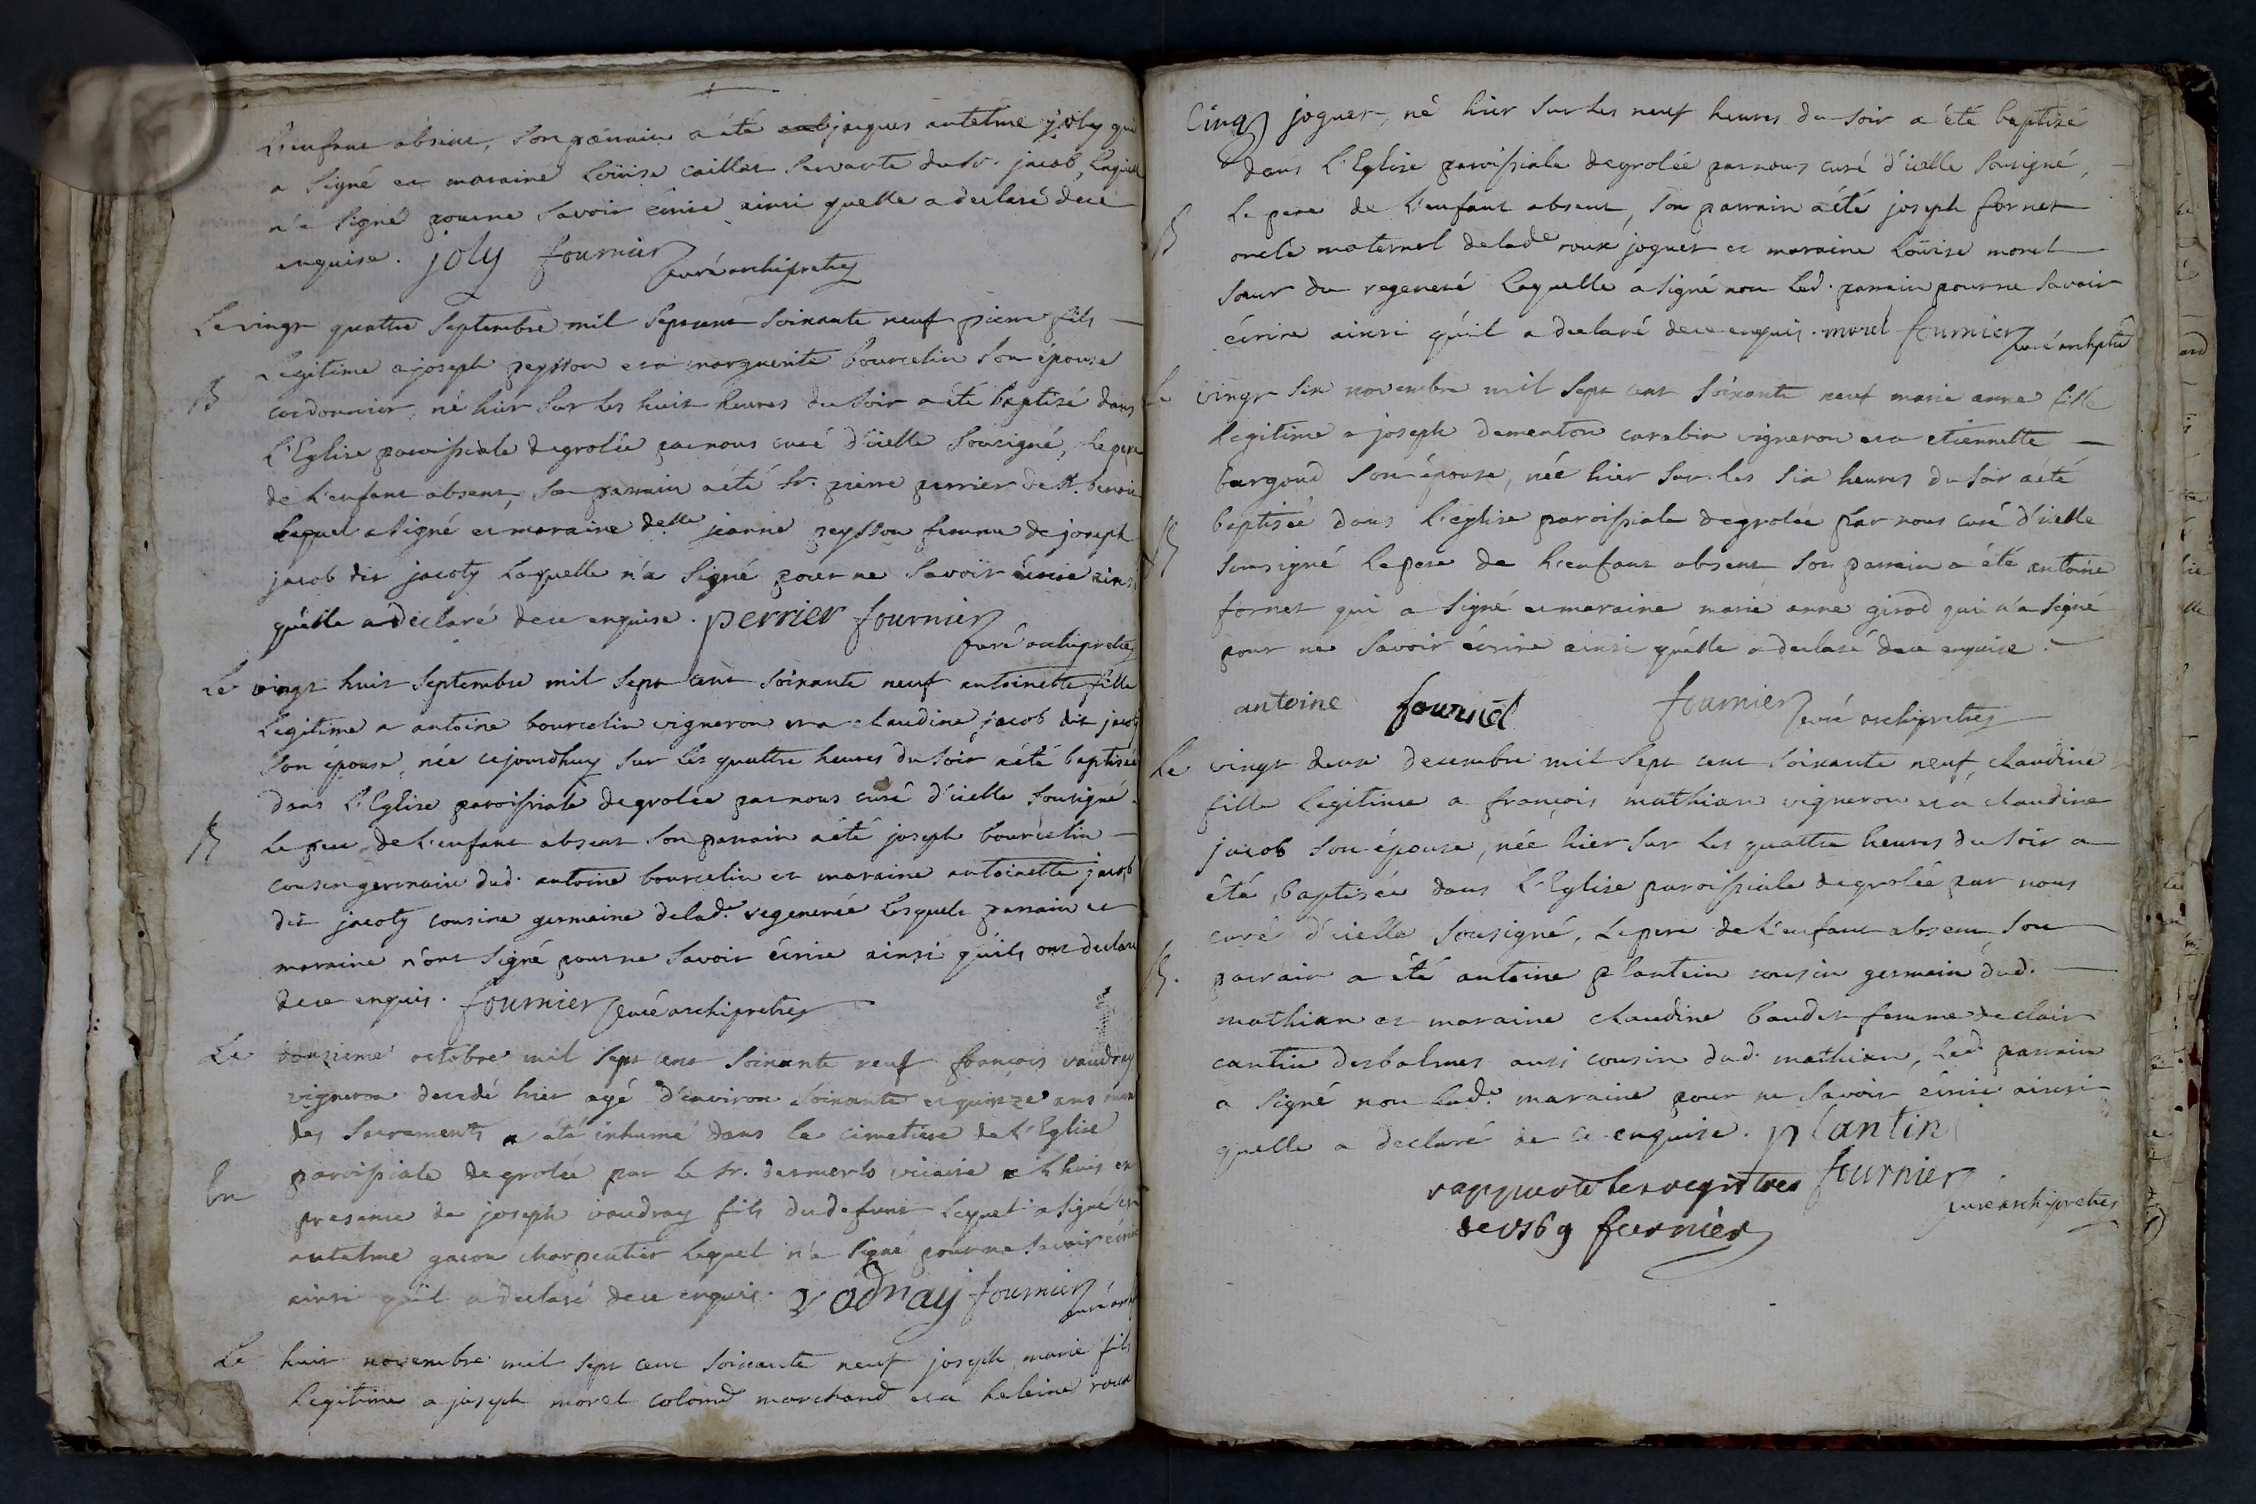 L'enfant absent, son parrain a été jacques antelme joly qui
a signé et maraine Loüise caillat servante du Sr. jacob, Laquelle
n'a signé pour ne savoir écrire ainsi quelle a declaré de ce
enquise. joly fournier
curé archipretre
Le vingt quattre septembre mil sept cent soixante neuf pierre fils
Legitime a joseph peysson et a marguerite bourcelin son épouse
B cordonnier, né hier sur les huit heures du soir a été baptisé dans
L'Eglise paroissiale de grolée par nous curé d'icelle sousigné, Le pere
de L'enfant absent, son parrain a été Sr. pierre perrier de St. benoit
Lequel a signé et maraine delle jeanne peysson femme de joseph
jacob dit jacoty Laquelle n'a signé pour ne savoir écrire ainsi
quelle a declaré de ce enquise. perrier fournier
curé archipretre
Le vingt huit septembre mil sept cent soixante neuf antoinette fille
Legitime a antoine bourcelin vigneron et a claudine jacob dit jacoty
son épouse, née cejourdhuy sur les quattre heures du soir a été baptisée
dans L'Eglise paroissiale de grolée par nous curé d'icelle sousigné
B Le pere de L'enfant absent son parrain a été joseph bourcelin
cousin germain dud. antoine bourcelin et maraine antoinette jacob
dit jacoty cousine germaine de lade. regenerée Lesquels parrain et
maraine n'ont signé pour ne savoir écrire ainsi qu'ils ont declaré
de ce enquis. fournier curé archipretre
Le onzieme octobre mil sept cent soixante neuf françois vaudray
vigneron decedé hier agé d'environ soixante et quinze ans muni
des sacrements a été inhumé dans le cimetiere de L'Eglise
paroissiale de grolée par le Sr. vicaire en
presence de joseph vaudray fils du defunt Lequel a signé et
antelme gacon charpentier Lequel n'a signé pour ne savoir écrire
ainsi qu'il a declaré de ce enquis. vodray fournier
curé
Le huit novembre mil sept cent soixante neuf joseph marie fils
Legitime a joseph morel colomd marchand et a heleine roux
Cinq joguet, né hier sur les neuf heures du soir a été baptisé
dans L'Eglise paroissiale de grolée par nous curé d'icelle sousigné,
B Le pere de L'enfant absent, son parrain a été joseph fornet
oncle maternel de lade roux joguet et maraine Loüise morel
sœur du regeneré Laquelle a signé non Led. parrain pour ne savoir
écrire ainsi qu'il a declaré de ce enquis. morel fournier curé archiptre
Le vingt six novembre mil sept cent soixante neuf marie anne fille
Legitime a joseph dementon carabin vigneron et a etiennette
burgoud son épouse, née hier sur les six heures du soir a été
B baptisée dans L'église paroissiale de grolée par nous curé d'icelle
sousigné Le pere de L'enfant absent son parrain a été antoine
fornet qui a signé et maraine marie anne girod qui n'a signé
pour ne savoir écrire ainsi qu'elle a declaré de ce enquise.
antoine fournet fournier curé archipretre
Le vingt deux decembre mil sept cent soixante neuf, claudine
fille Legitime a françois mathian vigneron et a claudine
jacob son épouse, née hier sur les quattre heures du soir a
été baptisée dans L'Eglise paroissiale de grolée par nous
curé d'icelle sousigné, Le pere de L'enfant absent son
B. parrain a été antoine plantin cousin germain dud.
mathian et maraine claudine baudet femme de clair
cantin desbalmes aussi cousin dud. mathian, Led. parrain
a signé non Lade. maraine pour ne savoir écrire ainsi
quelle a declaré de ce enquise. plantin
rapporté les registres fournier
de 1769 furnier curé archipretre